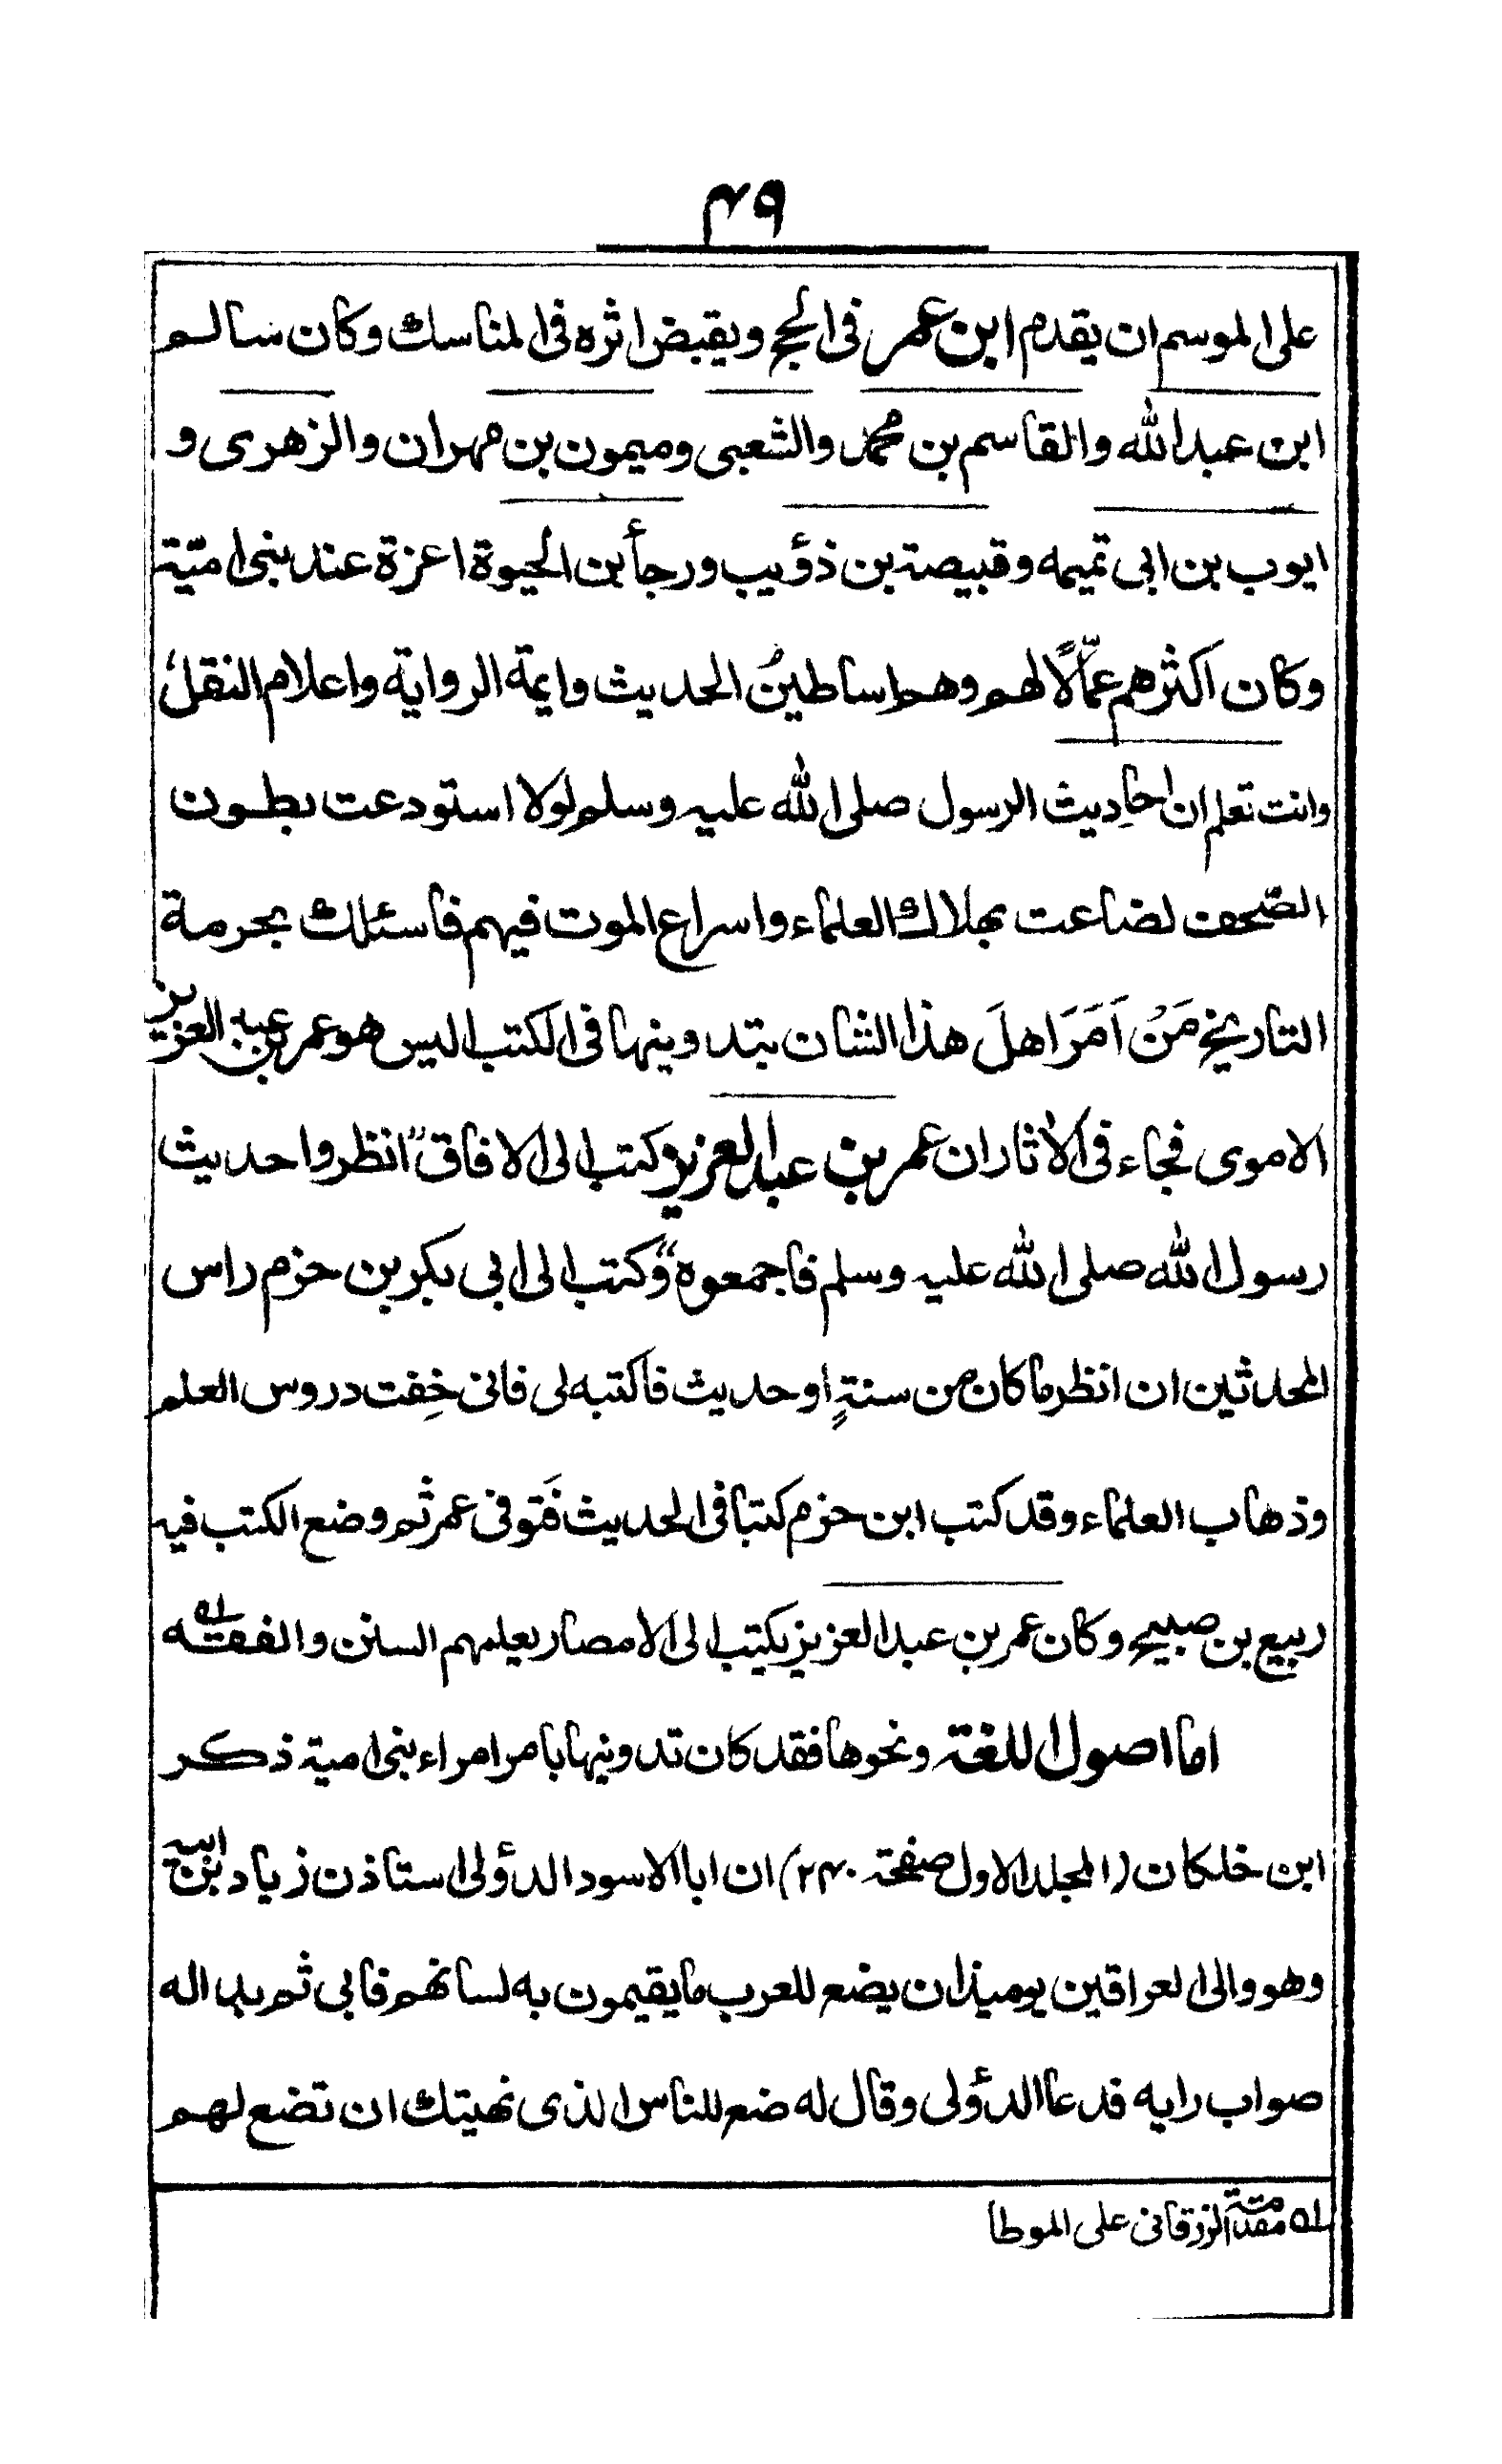 ۴۹
على الموسم ان يقدم ابن عمر فى الحج ويقبض اثره فى المناسك وكان سالم
ابن عبد الله والقاسم بن محمد والشعبى وميمون بن مهران والزهرى و
ايوب بن ابى تميمه وقبيصة بن ذؤيب ورجأ بن الحيوة اعزة عند بنى اميّة
وكان اكثرهم عمّالًا لهم وهم اساطينُ الحديث وايمة الرواية واعلام النقل،
وانت تعلم ان احاديث الرسول صلى الله عليه وسلم لولا استودعت بطون
الصّحف لضاعت بهلاك العلماء واسراع الموت فيهم فاسئلك بحرمة
التاريخ مَنْ اَمَرَ اهلَ هذا الشان بتدوينها فى الكتب اليس هو عمر بن عبد العزيز
الاموى فجاء فى الأثار ان عمر بن عبد العزيز كتب الى الافاق "انظروا حديث
رسول الله صلى الله عليه وسلم فاجمعوه" وكتب الى ابى بكر بن حزم راس
المحدثين ان انظر ما كان من سنةٍ او حديث فاكتبه لى فانى خِفت دروس العلم
وذهاب العلماء وقد كتب ابن حزم كتبا فى الحديث فَتوفى عمر ثم وضع الكتب فيه
ربيع بن صبيح وكان عمر بن عبد العزيز يكتب الى الامصار يعلمهم السنن والفقه ۱ه
اما اصول اللغة ونحوها فقد كان تدوينها بامر امراء بنى امية ذكر
ابن خلكان (المجلد الاول صفحة ۲۴۰) ان ابا الاسود الدؤلى استاذن زياد بن ابيه
وهو والى العراقين يوميذ ان يضع للعرب ما يقيمون به لسانهم فابى ثم بدا له
صواب رايه فدعا الدؤلى وقال له ضع للناس الذى نهيتك ان تضع لهم
۱ه مقدمة الزرقانى على الموطا